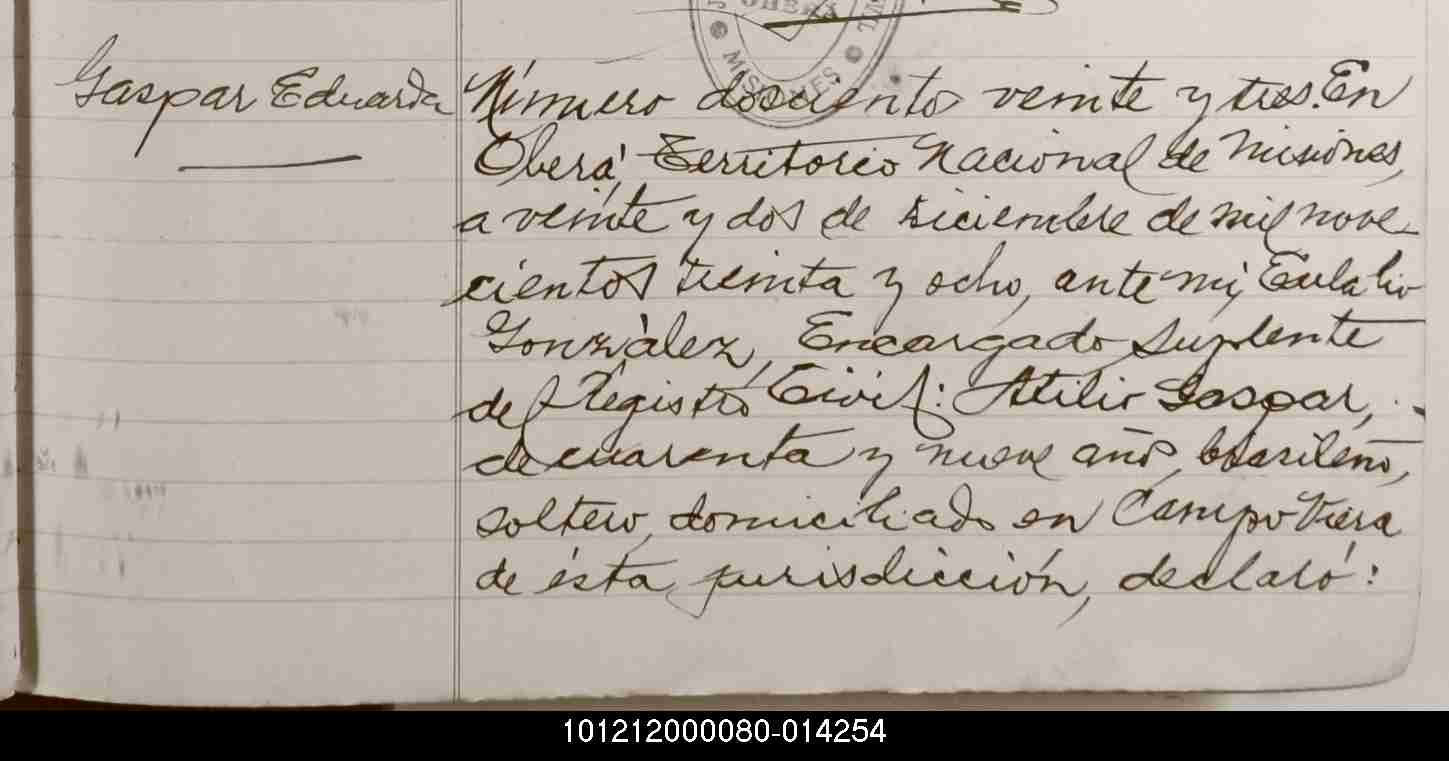 OBERÁ
MISIONES
Gaspar Eduarda
Número doscientos veinte y tres. En
Oberá, Territorio Nacional de Misiones,
a veinte y dos de diciembre de mil nove
cientos treinta y ocho, ante mí, Eulalio
González, Encargado Suplente
del Registro Civil: Atilio Gaspar,
de cuarenta y nueve años, brasileño,
soltero, domiciliado en Campo Viera
de ésta jurisdicción, declaró:
101212000080-014254